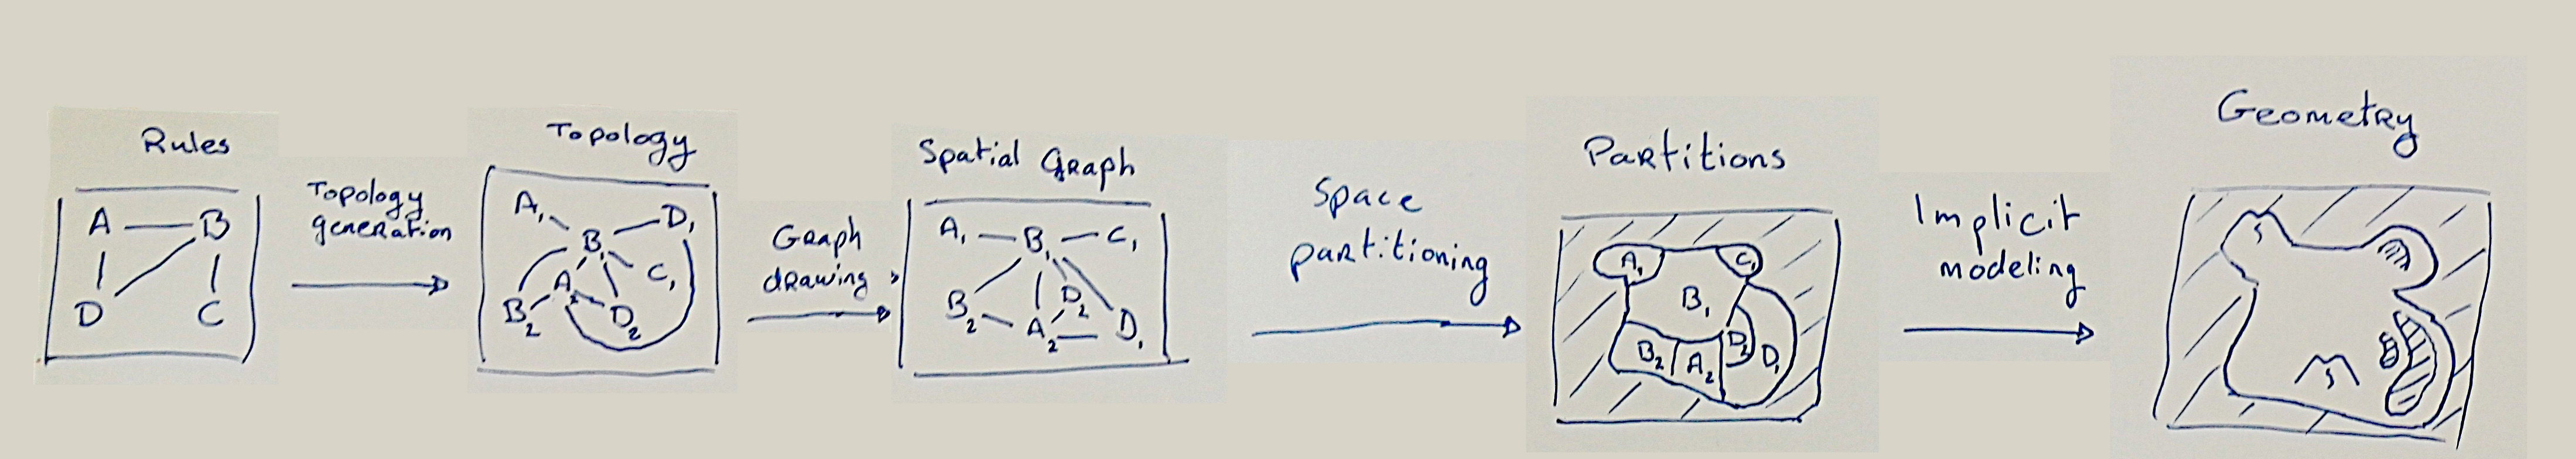 Rules
A B
D C
Topology
generation
Topology
A1 D1
B1
C1
A2
B2 D2
Graph
drawing
Spatial Graph
A1 B1 C1
B2 D2
A2 D1
Space
partitioning
Partitions
A1 C1
B1
B2 A2 D2 D1
Implicit
modeling
Geometry